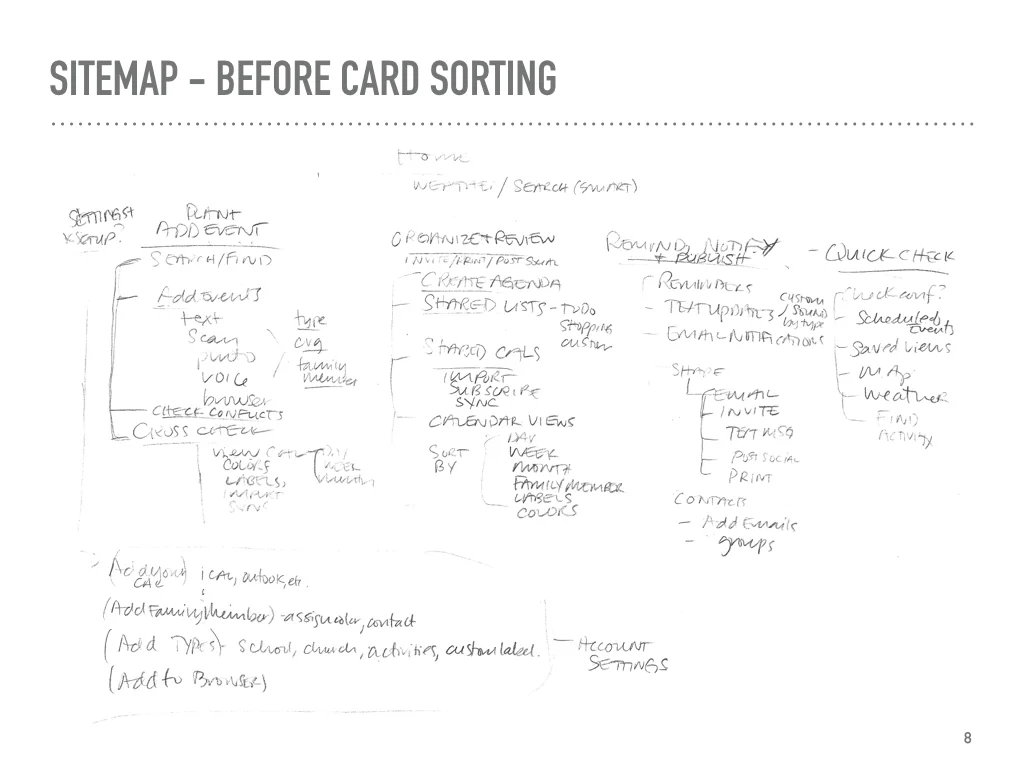 SITEMAP - BEFORE CARD SORTING
Home
WEATHER / SEARCH (SMART)
SETTINGS +
SETUP?
PLAN +
ADD EVENT
SEARCH/FIND
Add events
text
scan
photo
voice
browser
type
cvg
family
member
CHECK CONFLICTS
CROSS CHECK
view CAL
COLORS
LABELS,
IMPORT
SYNC
DAY
WEEK
month
ORGANIZE + REVIEW
INVITE/PRINT/POST SOCIAL
CREATE AGENDA
SHARED LISTS - TODO
Shopping
custom
SHARED CALS
IMPORT
SUBSCRIBE
SYNC
CALENDAR VIEWS
SORT
BY
DAY
WEEK
MONTH
FAMILY MEMBER
LABELS
COLORS
REMIND, NOTIFY
+ PUBLISH
REMINDERS
- TEXT UPDATES
CUSTOM
/ SOUND
by type
- EMAIL NOTIFICATIONS
SHARE
EMAIL
- INVITE
- TEXT MSG
- POST SOCIAL
- PRINT
CONTACTS
- Add Emails
- groups
- QUICK CHECK
Check conf?
- Scheduled
Events
- Saved views
- MAP
- Weather
- FIND
ACTIVITY
(Add your) iCAL, outlook, etc.
CAL
(Add Family Member) - assign color, contact
(Add TYPES) - school, church, activities, custom label.
(Add to BROWSER)
- ACCOUNT
SETTINGS
8